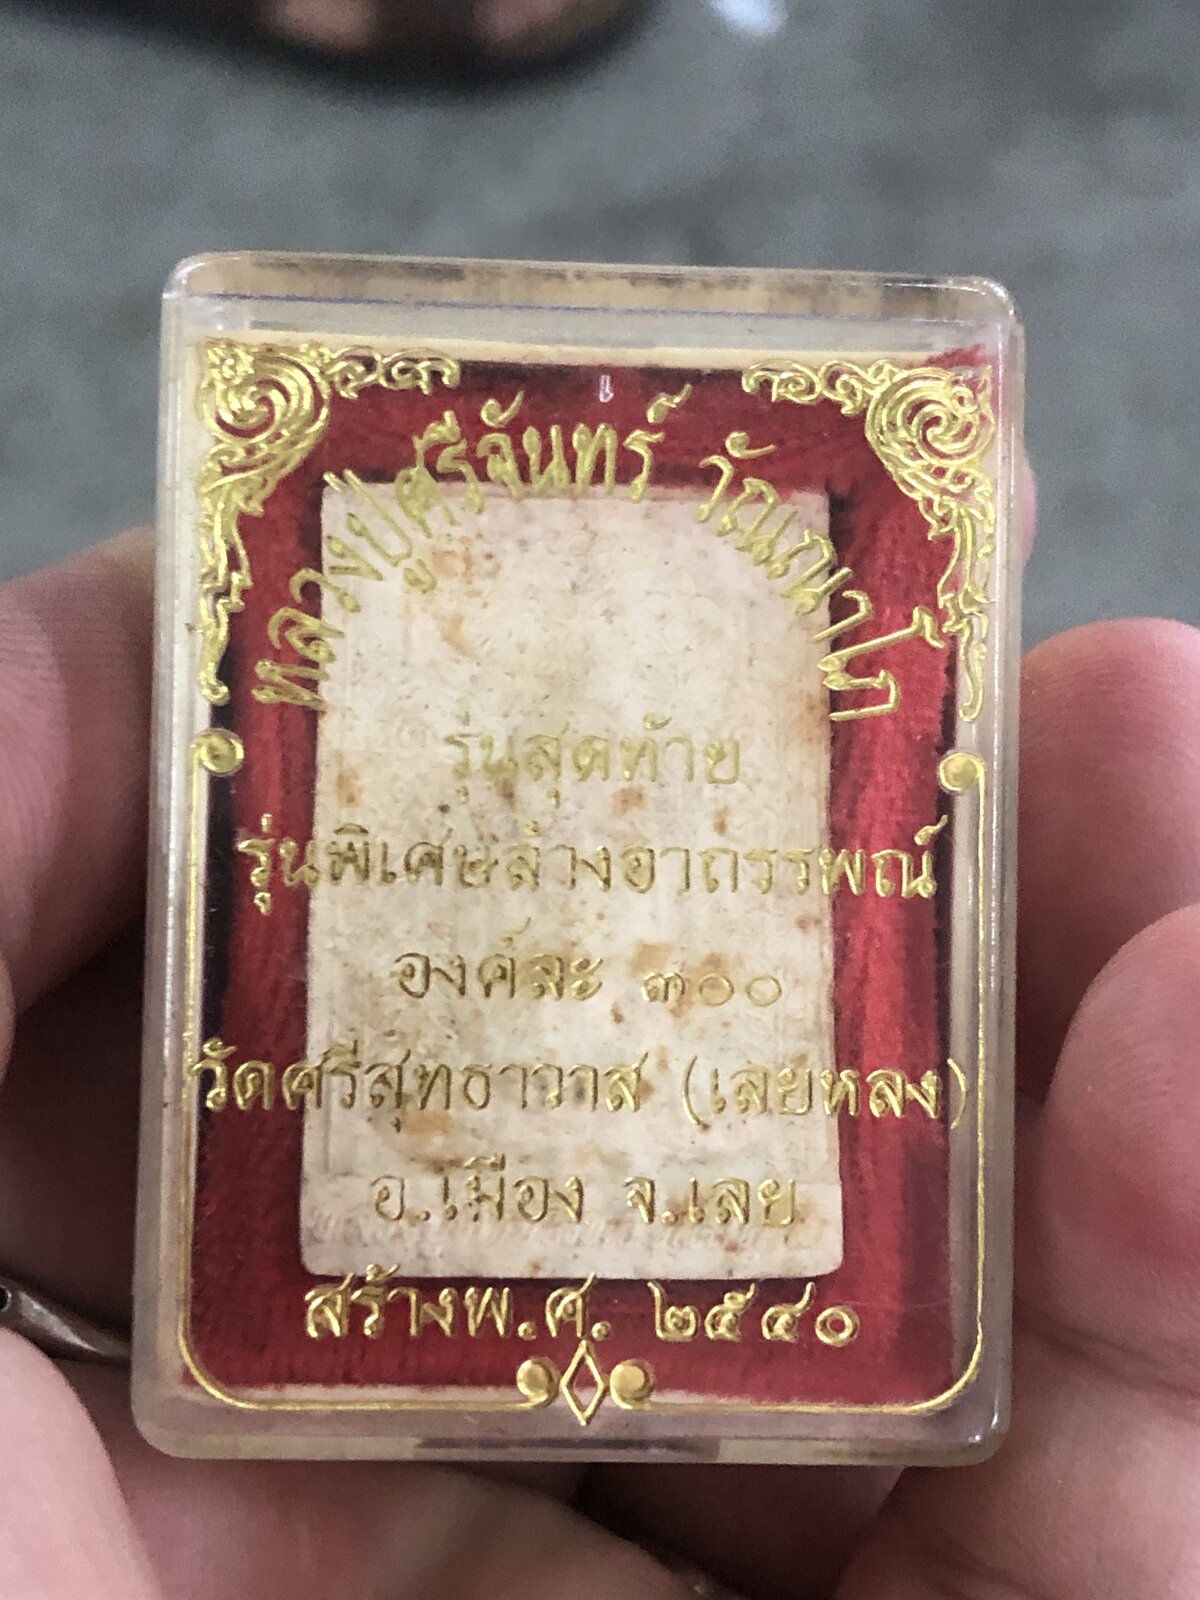 หลวงปู่ศรีจันทร์ วัณณาโภ
รุ่นสุดท้าย
รุ่นพิเศษล้างอาถรรพณ์
องค์ละ ๓๐๐
วัดศรีสุทธาวาส (เลยหลง)
อ.เมือง จ.เลย
สร้างพ.ศ. ๒๕๔๐